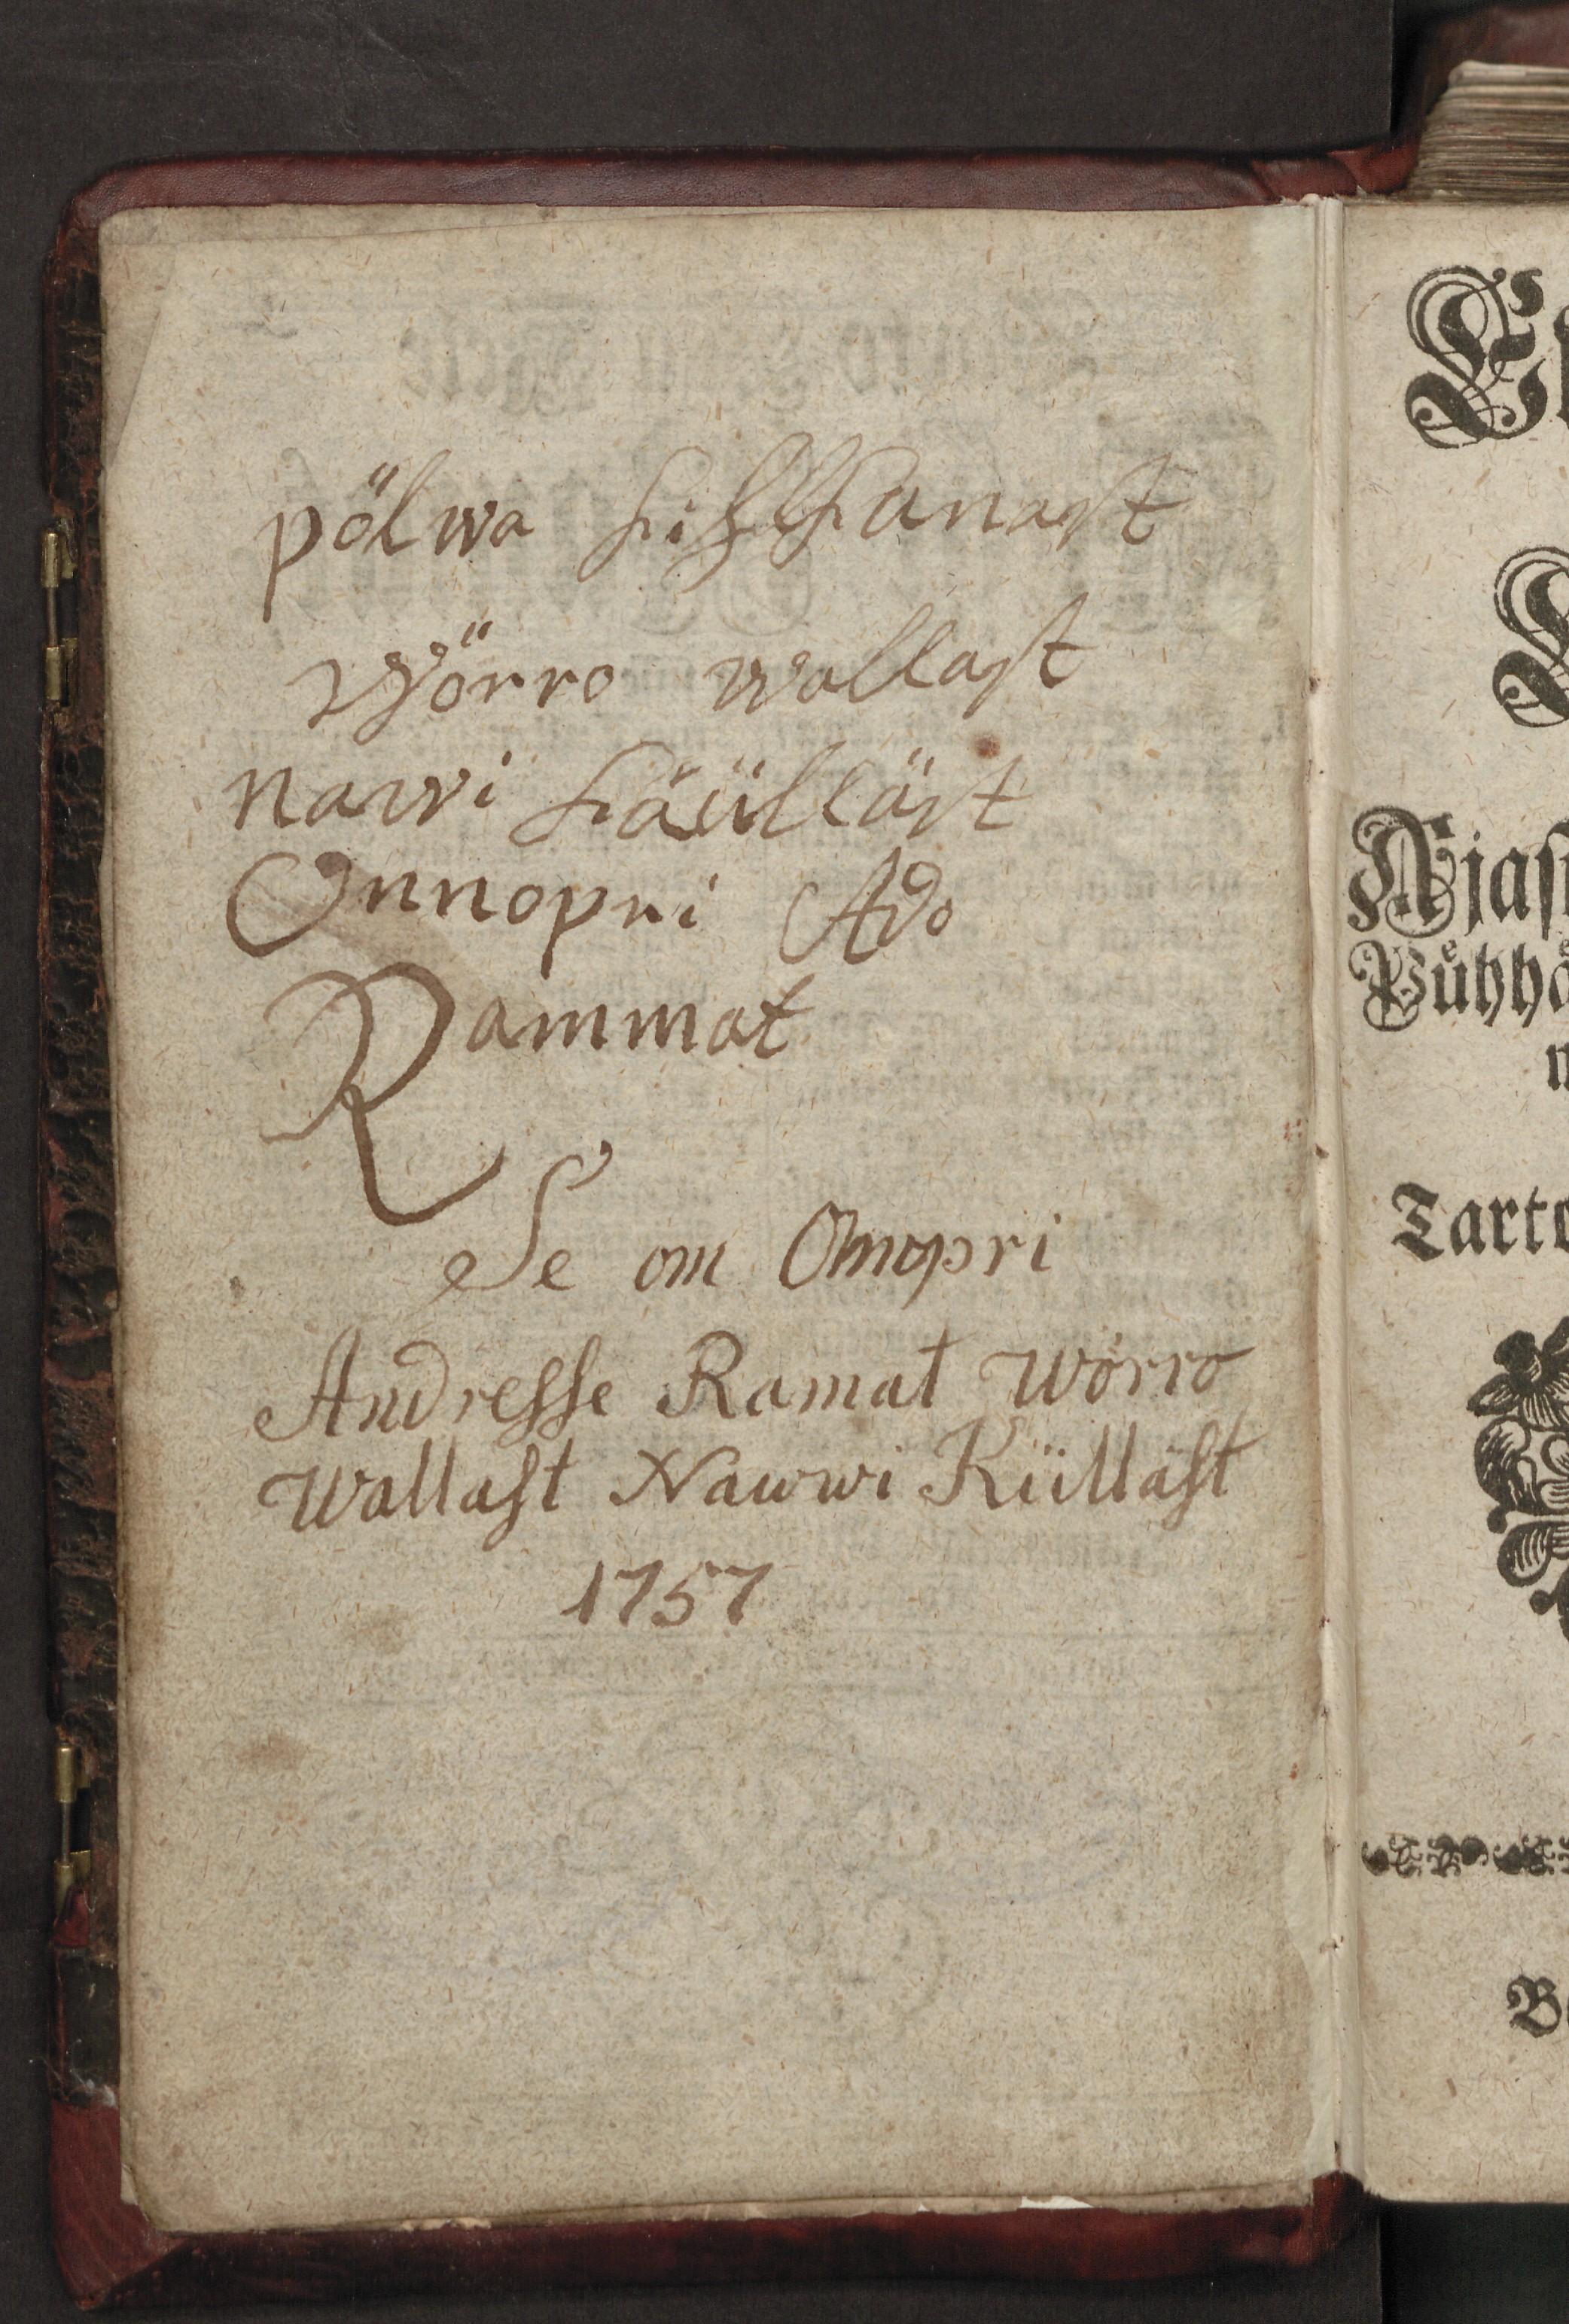 pölwa kihhkunast
Wörro wallast
nawi küllast
Onnopri Ado
Rammat
Se om Onopri
Andresse Ramat Wörro
Wallast Nawwi Küllast
1757
Ajas
Tarto